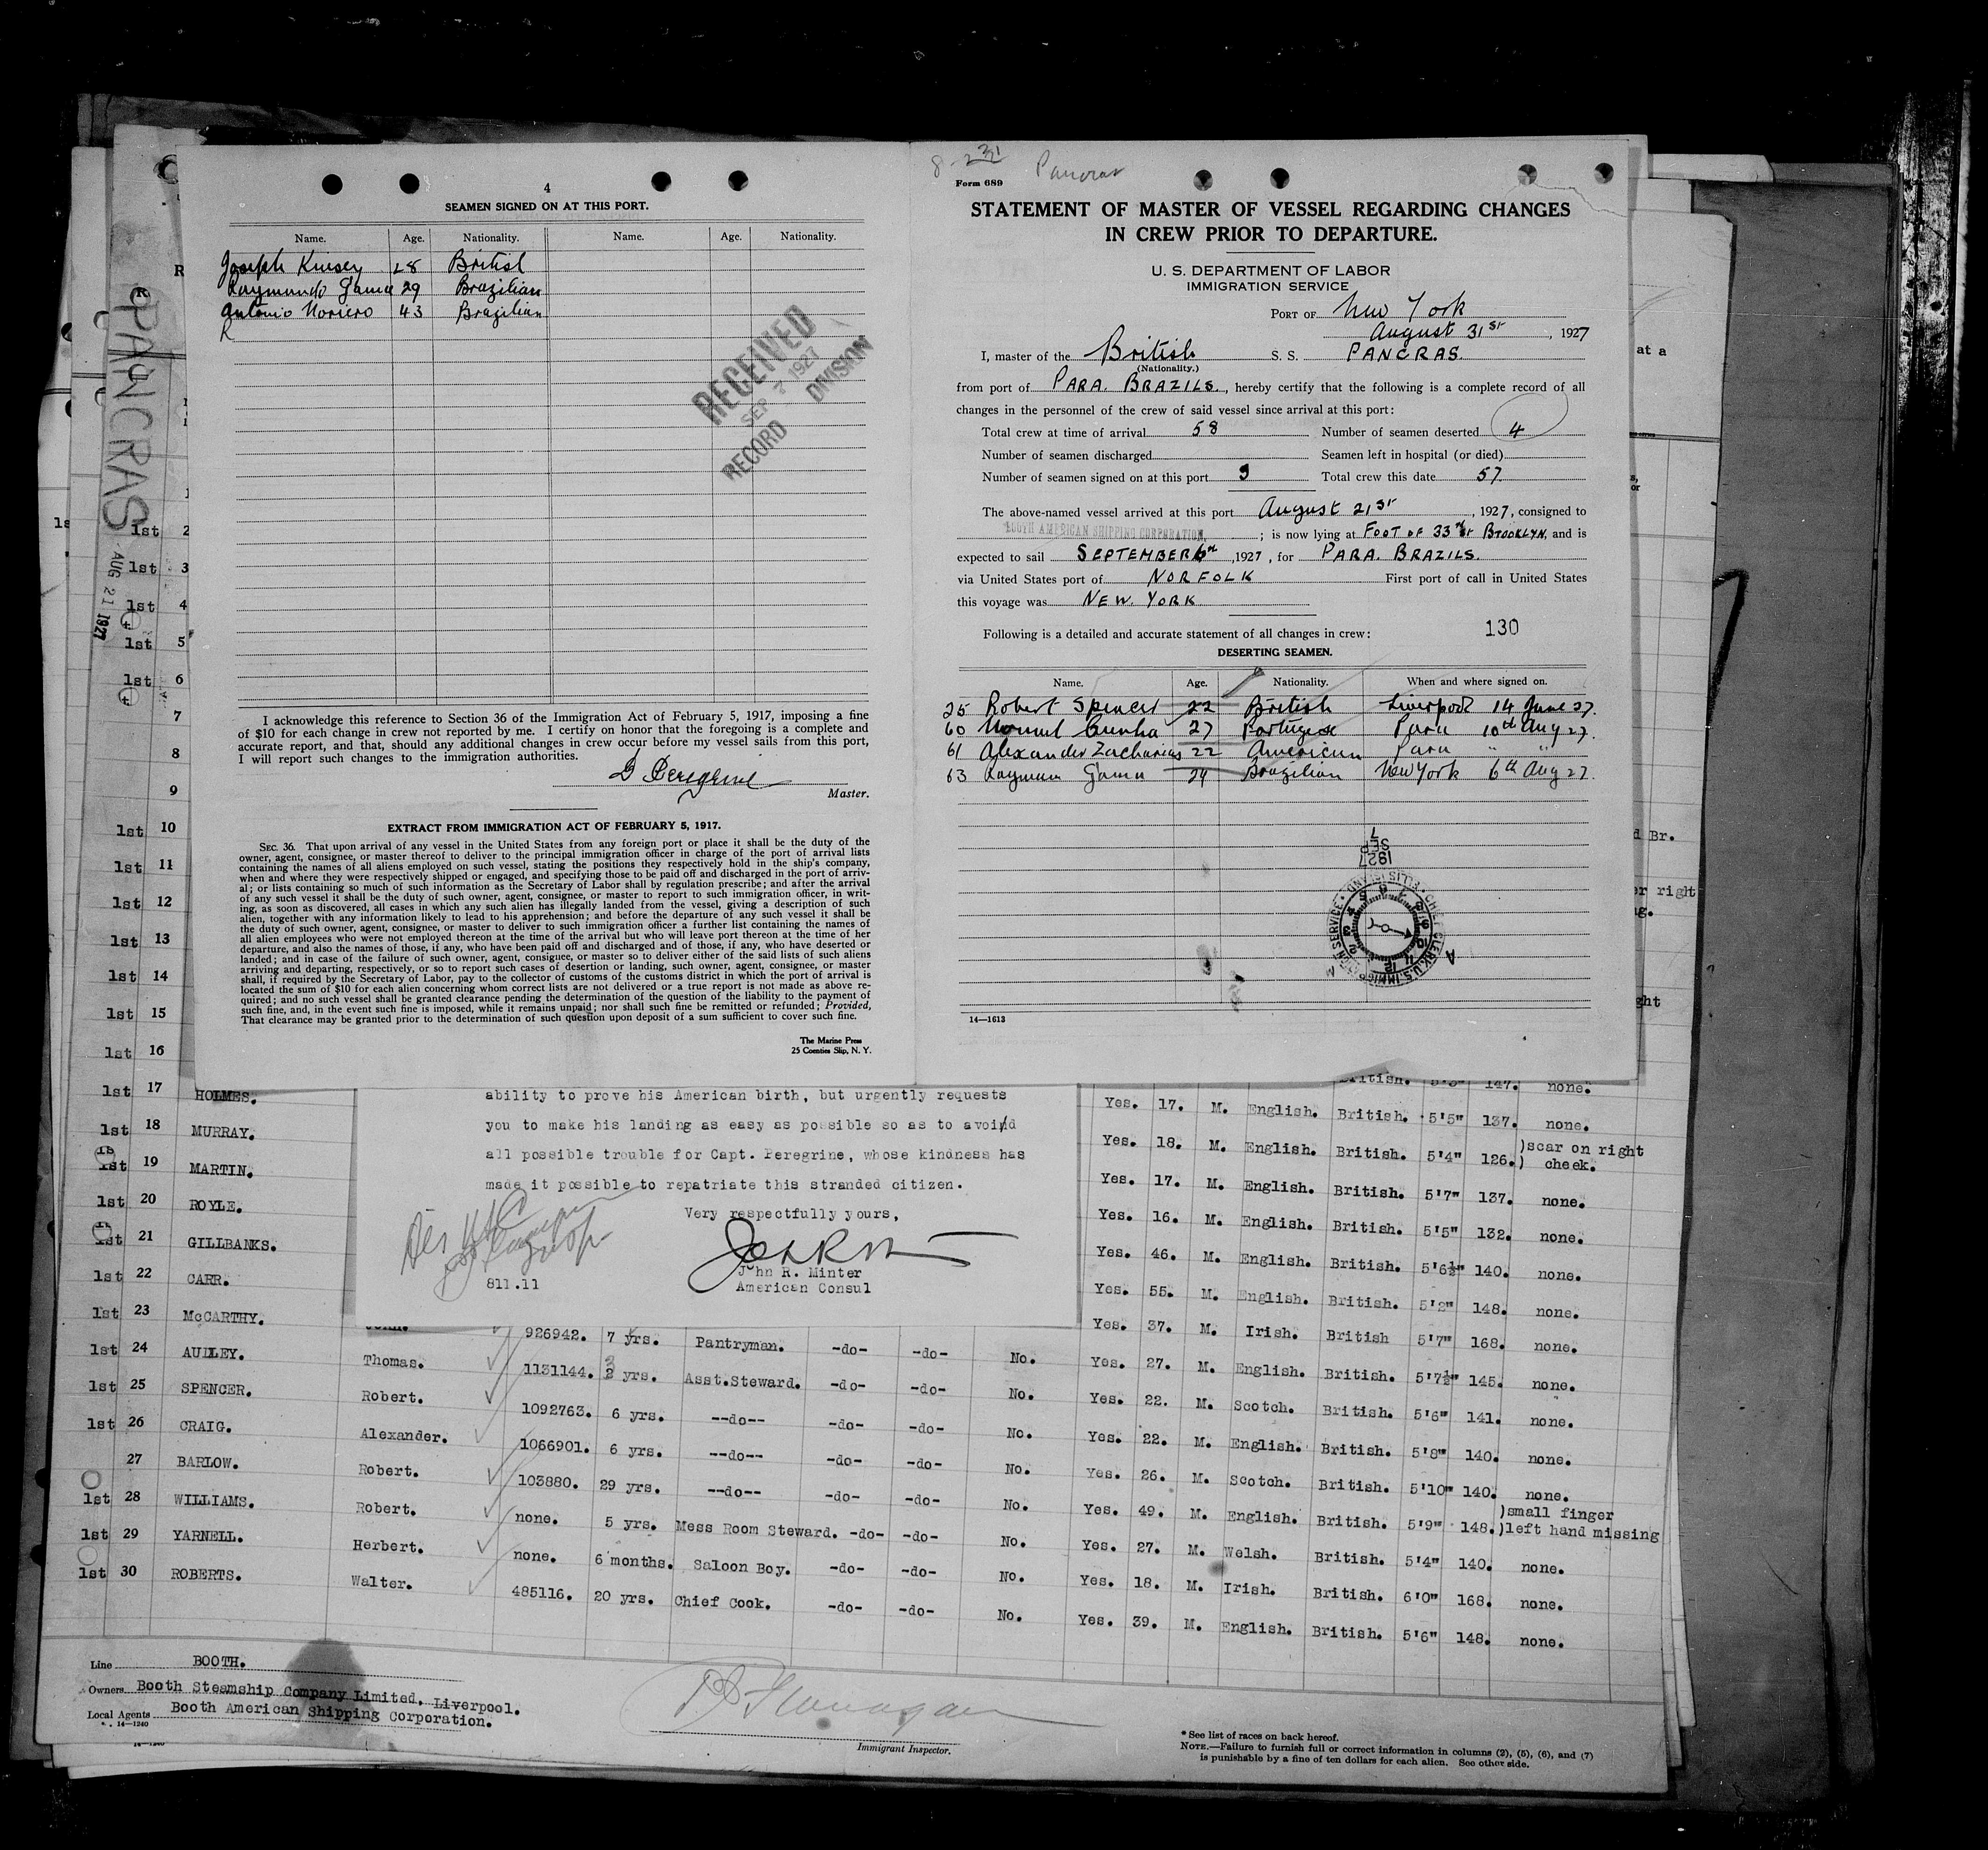 4
SEAMEN SIGNED ON AT THIS PORT.
Name. Age. Nationality. Name. Age. Nationality.
Joseph Kinsey 28 British
Raymundo Gama 29 Brazilian
Antonio Moriero 43 Brazilian
R
RECEIVED
SEP 7 1927
RECORD DIVISION
I acknowledge this reference to Section 36 of the Immigration Act of February 5, 1917, imposing a fine
of $10 for each change in crew not reported by me. I certify on honor that the foregoing is a complete and
accurate report, and that, should any additional changes in crew occur before my vessel sails from this port,
I will report such changes to the immigration authorities.
G Peregrine
Master.
EXTRACT FROM IMMIGRATION ACT OF FEBRUARY 5, 1917.
SEC. 36. That upon arrival of any vessel in the United States from any foreign port or place it shall be the duty of the
owner, agent, consignee, or master thereof to deliver to the principal immigration officer in charge of the port of arrival lists
containing the names of all aliens employed on such vessel, stating the positions they respectively hold in the ship's company,
when and where they were respectively shipped or engaged, and specifying those to be paid off and discharged in the port of arriv-
al; or lists containing so much of such information as the Secretary of Labor shall by regulation prescribe; and after the arrival
of any such vessel it shall be the duty of such owner, agent, consignee, or master to report to such immigration officer, in writ-
ing, as soon as discovered, all cases in which any such alien has illegally landed from the vessel, giving a description of such
alien, together with any information likely to lead to his apprehension; and before the departure of any such vessel it shall be
the duty of such owner, agent, consignee, or master to deliver to such immigration officer a further list containing the names of
all alien employees who were not employed thereon at the time of the arrival but who will leave port thereon at the time of her
departure, and also the names of those, if any, who have been paid off and discharged and of those, if any, who have deserted or
landed; and in case of the failure of such owner, agent, consignee, or master so to deliver either of the said lists of such aliens
arriving and departing, respectively, or so to report such cases of desertion or landing, such owner, agent, consignee, or master
shall, if required by the Secretary of Labor, pay to the collector of customs of the customs district in which the port of arrival is
located the sum of $10 for each alien concerning whom correct lists are not delivered or a true report is not made as above re-
quired; and no such vessel shall be granted clearance pending the determination of the question of the liability to the payment of
such fine, and, in the event such fine is imposed, while it remains unpaid; nor shall such fine be remitted or refunded; Provided,
That clearance may be granted prior to the determination of such question upon deposit of a sum sufficient to cover such fine.
The Marine Press
25 Coenties Slip, N. Y.
8-231 Pancras
Form 689
STATEMENT OF MASTER OF VESSEL REGARDING CHANGES
IN CREW PRIOR TO DEPARTURE.
U. S. DEPARTMENT OF LABOR
IMMIGRATION SERVICE
PORT OF New York
August 31st, 1927
I, master of the British S. S. PANCRAS
(Nationality.)
from port of PARA. BRAZILS., hereby certify that the following is a complete record of all
changes in the personnel of the crew of said vessel since arrival at this port:
Total crew at time of arrival 58 Number of seamen deserted 4
Number of seamen discharged Seamen left in hospital (or died)
Number of seamen signed on at this port 3 Total crew this date 57
The above-named vessel arrived at this port August 21st, 1927, consigned to
BOOTH AMERICAN SHIPPING CORPORATION, ; is now lying at FOOT OF 33rd St BROOKLYN, and is
expected to sail SEPTEMBER 6th, 1927, for PARA. BRAZILS.
via United States port of NORFOLK First port of call in United States
this voyage was NEW YORK
Following is a detailed and accurate statement of all changes in crew: 130
DESERTING SEAMEN.
Name. Age. Nationality. When and where signed on.
25 Robert Spencer 22 British Liverpool 14 June 27.
60 Manuel Cunha 27 Portugese Para 10th Aug 27.
61 Alexander Zacharias 22 American Para " "
63 Raymun Gama 29 Brazilian New York 6th Aug 27.
SEP 7
1927
CHIEF CLERK, U.S. IMMIGRATION SERVICE · ELLIS ISLAND
14—1613
PANCRAS
AUG 21 1927
at a
d Br.
er right
ght
1st 2
1st 3
1st 4
1st 5
1st 6
7
8
9
1st 10
1st 11
1st 12
1st 13
1st 14
1st 15
1st 16
British. 147. none.
1st 17 HOLMES. Yes. 17. M. English. British. 5'5" 137. none.
1st 18 MURRAY. Yes. 18. M. English. British. 5'4" 126. )scar on right
) cheek.
1st 19 MARTIN. Yes. 17. M. English. British. 5'7" 137. none.
1st 20 ROYLE. Yes. 16. M. English. British. 5'5" 132. none.
1st 21 GILLBANKS. Yes. 46. M. English. British. 5'6½" 140. none.
1st 22 CARR. Yes. 55. M. English. British. 5'2" 148. none.
1st 23 McCARTHY. John. 926942. 7 yrs. Pantryman. -do- -do- No. Yes. 37. M. Irish. British 5'7" 168. none.
1st 24 AUDLEY. Thomas. 1131144. 2 3 yrs. Asst.Steward. -do- -do- No. Yes. 27. M. English. British. 5'7½" 145. none.
1st 25 SPENCER. Robert. 1092763. 6 yrs. --do-- -do- -do- No. Yes. 22. M. Scotch. British. 5'6" 141. none.
1st 26 CRAIG. Alexander. 1066901. 6 yrs. --do-- -do- -do- No. Yes. 22. M. English. British. 5'8" 140. none.
27 BARLOW. Robert. 103880. 29 yrs. --do-- -do- -do- No. Yes. 26. M. Scotch. British. 5'10" 140. none.
1st 28 WILLIAMS. Robert. none. 5 yrs. Mess Room Steward. -do- -do- No. Yes. 49. M. English. British. 5'9" 148. )small finger
)left hand missing
1st 29 YARNELL. Herbert. none. 6 months. Saloon Boy. -do- -do- No. Yes. 27. M. Welsh. British. 5'4" 140. none.
1st 30 ROBERTS. Walter. 485116. 20 yrs. Chief Cook. -do- -do- No. Yes. 18. M. Irish. British. 6'0" 168. none.
Yes. 39. M. English. British. 5'6" 148. none.
ability to prove his American birth, but urgently requests
you to make his landing as easy as possible so as to avoind
all possible trouble for Capt. Peregrine, whose kindness has
made it possible to repatriate this stranded citizen.
Very respectfully yours,
John R. Minter
American Consul
811.11
Line BOOTH.
Owners Booth Steamship Company Limited. Liverpool.
Local Agents Booth American Shipping Corporation.
14—1240
Immigrant Inspector.
* See list of races on back hereof.
NOTE.—Failure to furnish full or correct information in columns (2), (5), (6), and (7)
is punishable by a fine of ten dollars for each alien. See other side.